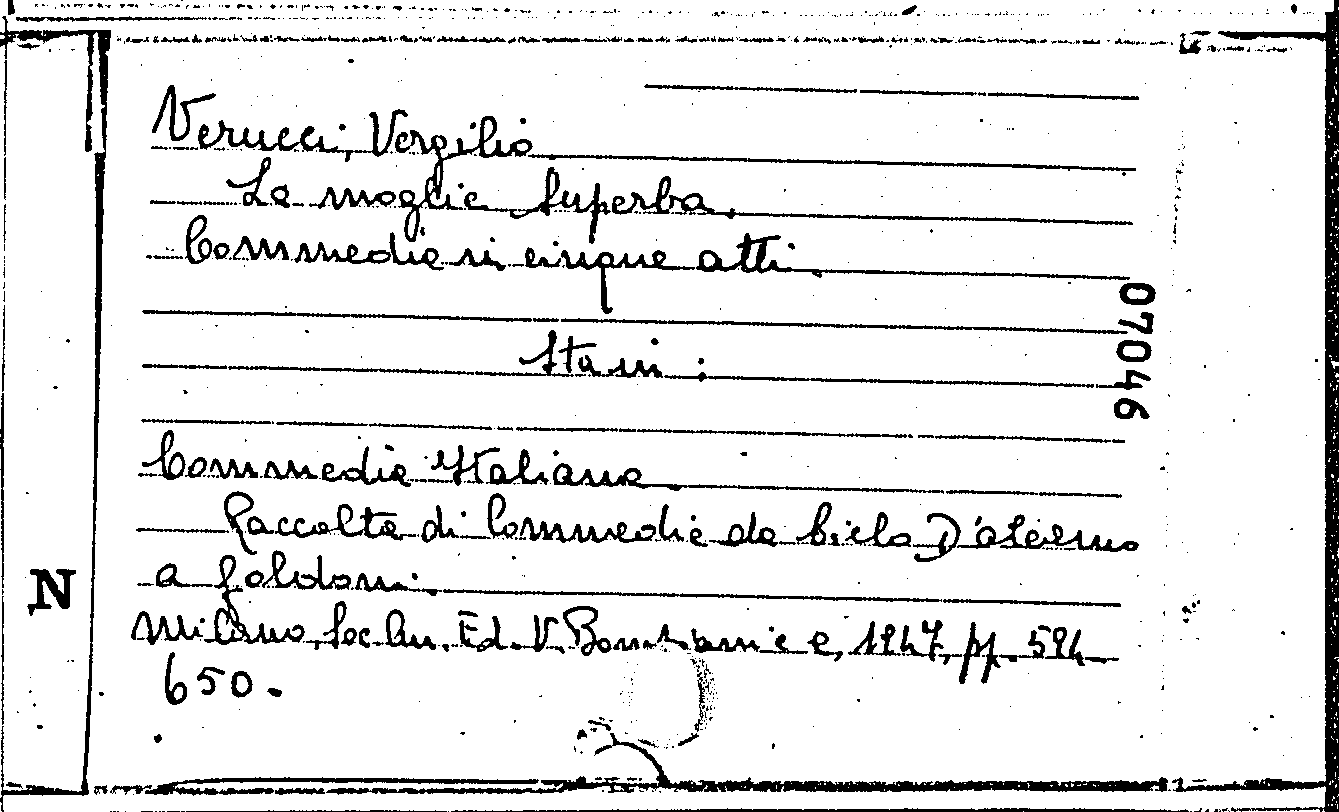 Verucci, Vergilio
La moglie superba.
Commedia in cinque atti.
Sta in:
07046
Commedia Italiana.
Raccolta di Commedie da Cielo D'Alcamo
a Goldoni.
N
Milano, Soc. An. Ed. V. Bompiani e C, 1947, pp. 594-
650.